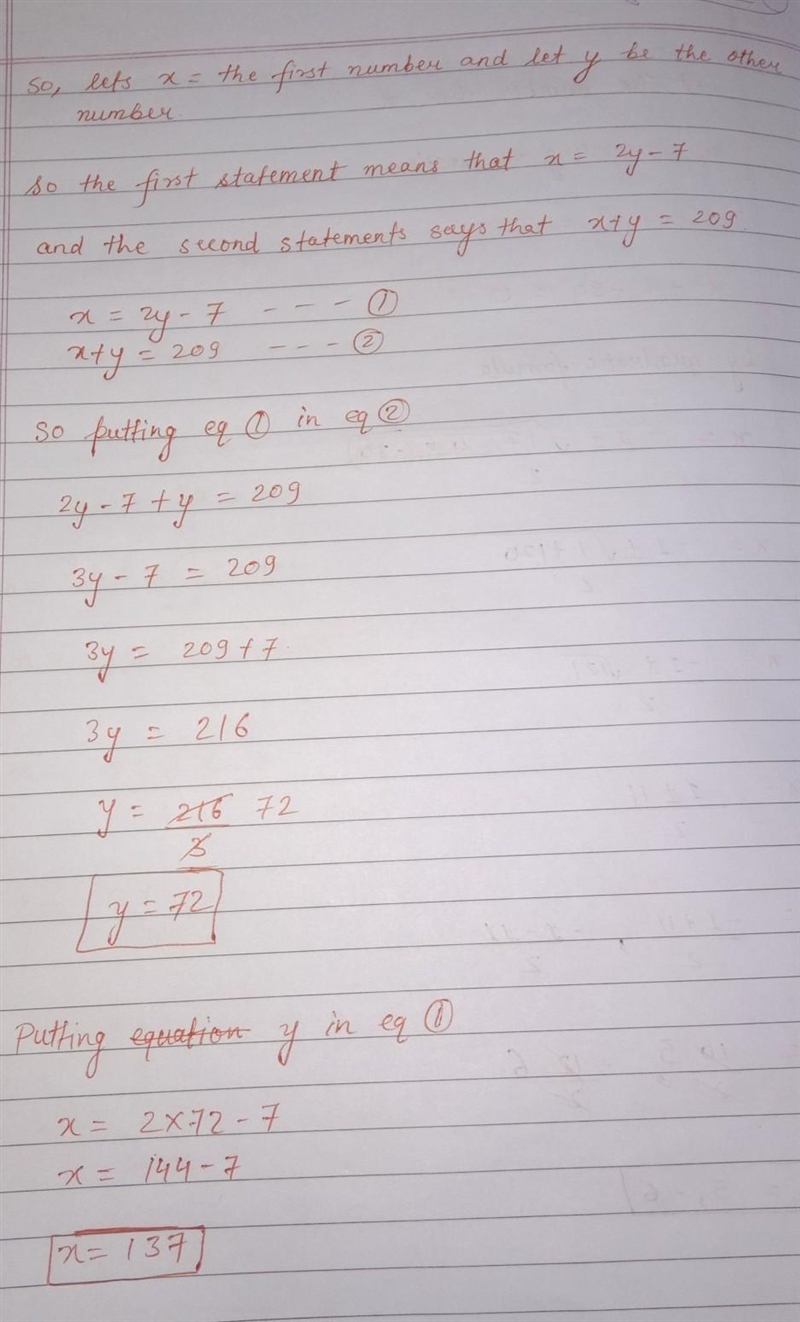 So, lets x = the first number and let y be the other
number.
So the first statement means that x = 2y - 7
and the second statements says that x+y = 209.
x = 2y - 7 - - - ①
x+y = 209 - - - ②
So putting eq ① in eq ②
2y - 7 + y = 209
3y - 7 = 209
3y = 209 + 7.
3y = 216
y = 216/3 72
y = 72
Putting equation y in eq ①
x = 2×72 - 7
x = 144 - 7
x = 137